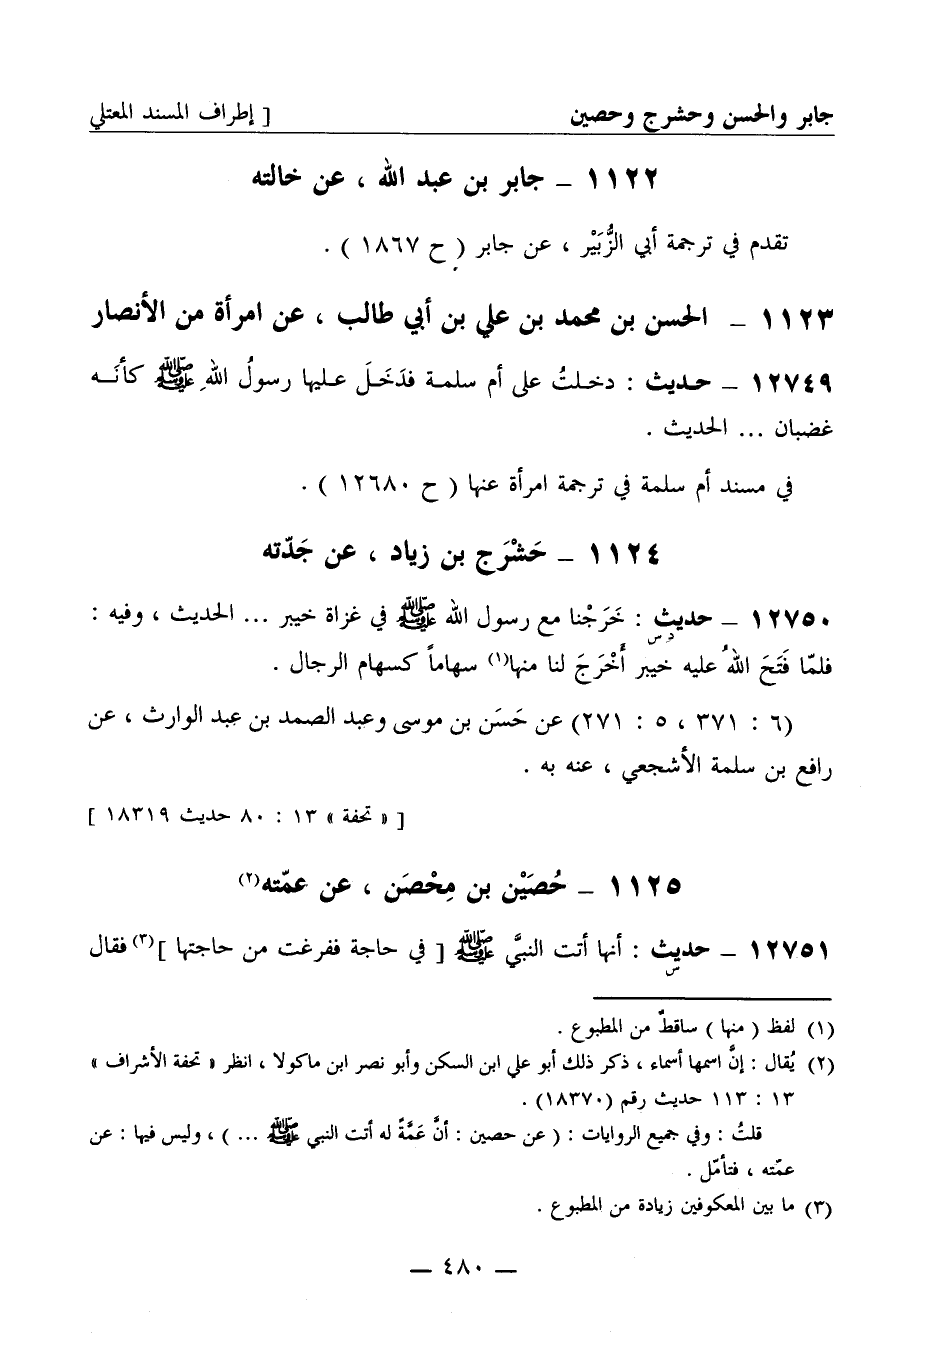 جابر والحسن وحشرج وحصين [ إطراف المسند المعتلي
١١٢٢ – جابر بن عبد الله ، عن خالته
تقدم في ترجمة أبي الزُّبَيْر ، عن جابر ( ح ١٨٦٧ ) .
١١٢٣ – الحسن بن محمد بن علي بن أبي طالب ، عن امرأة من الأنصار
١٢٧٤٩ – حديث : دخلتُ على أم سلمة فدَخَلَ عليها رسولُ اللهِ ﷺ كأنَّه
غضبان ... الحديث .
في مسند أم سلمة في ترجمة امرأة عنها ( ح ١٢٦٨٠ ) .
١١٢٤ – حَشْرَج بن زياد ، عن جَدّته
١٢٧٥٠ – حديث : خَرَجْنا مع رسول الله ﷺ في غزاة خيبر ... الحديث ، وفيه :
د س
فلمّا فَتَحَ اللهُ عليه خيبر أَخْرَجَ لنا منها(١) سهاماً كسهام الرجال .
(٦ : ٣٧١ ، ٥ : ٢٧١) عن حَسَن بن موسى وعبد الصمد بن عبد الوارث ، عن
رافع بن سلمة الأشجعي ، عنه به .
[ « تحفة » ١٣ : ٨٠ حديث ١٨٣١٩ ]
١١٢٥ – حُصَيْن بن مِحْصَن ، عن عمّته(٢)
١٢٧٥١ – حديث : أنها أتت النبيَّ ﷺ [ في حاجة ففرغت من حاجتها ](٣) فقال
س
(١) لفظ ( منها ) ساقطٌ من المطبوع .
(٢) يُقال : إنَّ اسمها أسماء ، ذكر ذلك أبو علي ابن السكن وأبو نصر ابن ماكولا ، انظر « تحفة الأشراف »
١٣ : ١١٣ حديث رقم (١٨٣٧٠) .
قلتُ : وفي جميع الروايات : ( عن حصين : أنَّ عَمَّةً له أتت النبي ﷺ ... ) ، وليس فيها : عن
عمّته ، فتأمّل .
(٣) ما بين المعكوفين زيادة من المطبوع .
— ٤٨٠ —